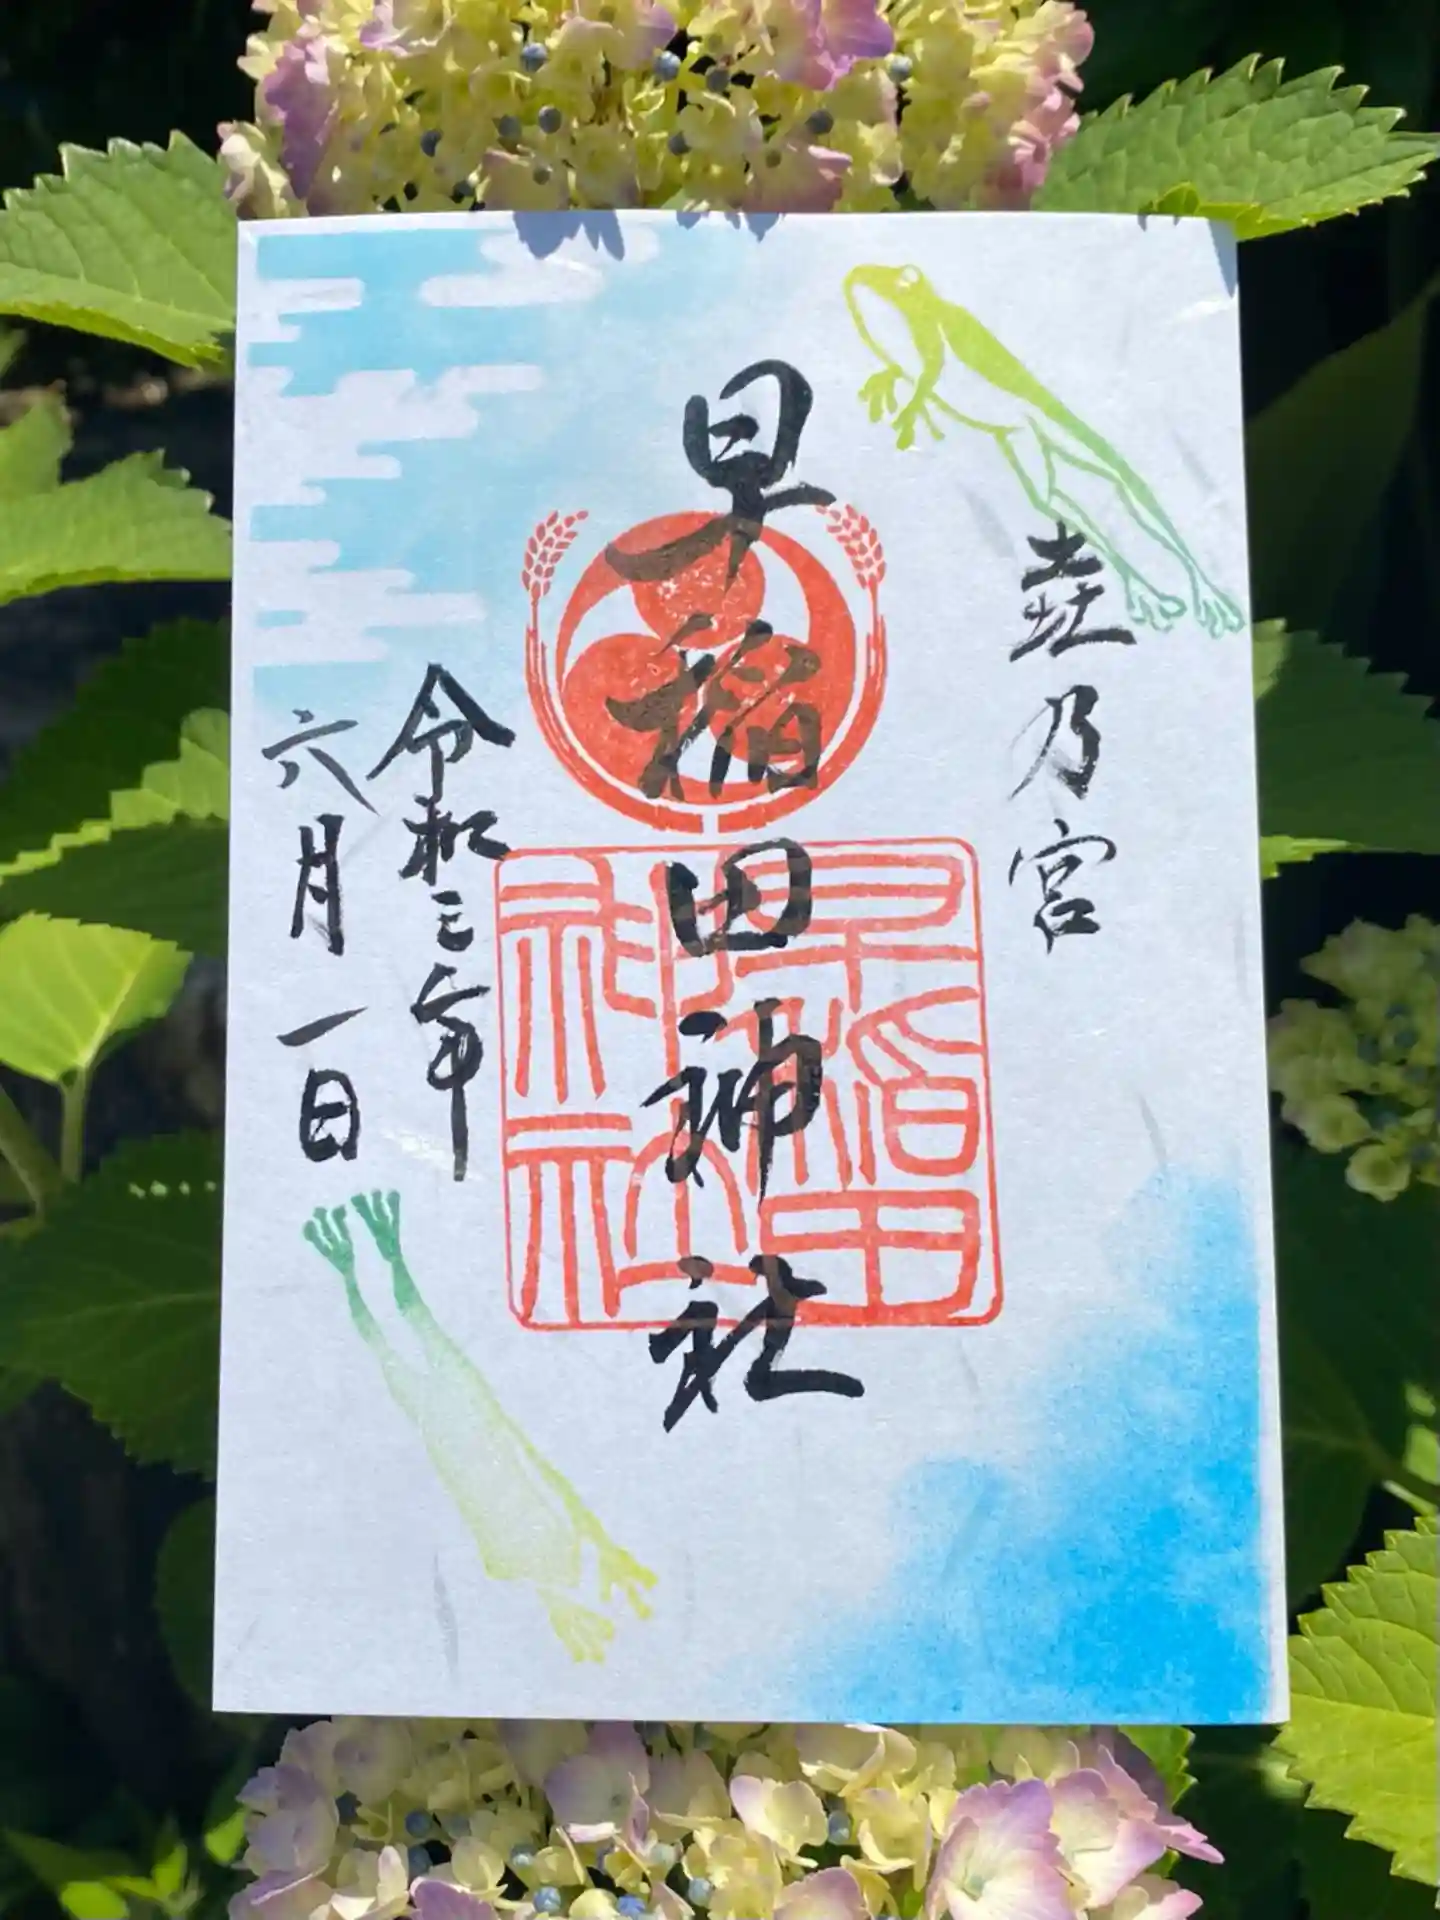 垚乃宮
早稲田神社
令和三年
六月一日
早稲田
神社